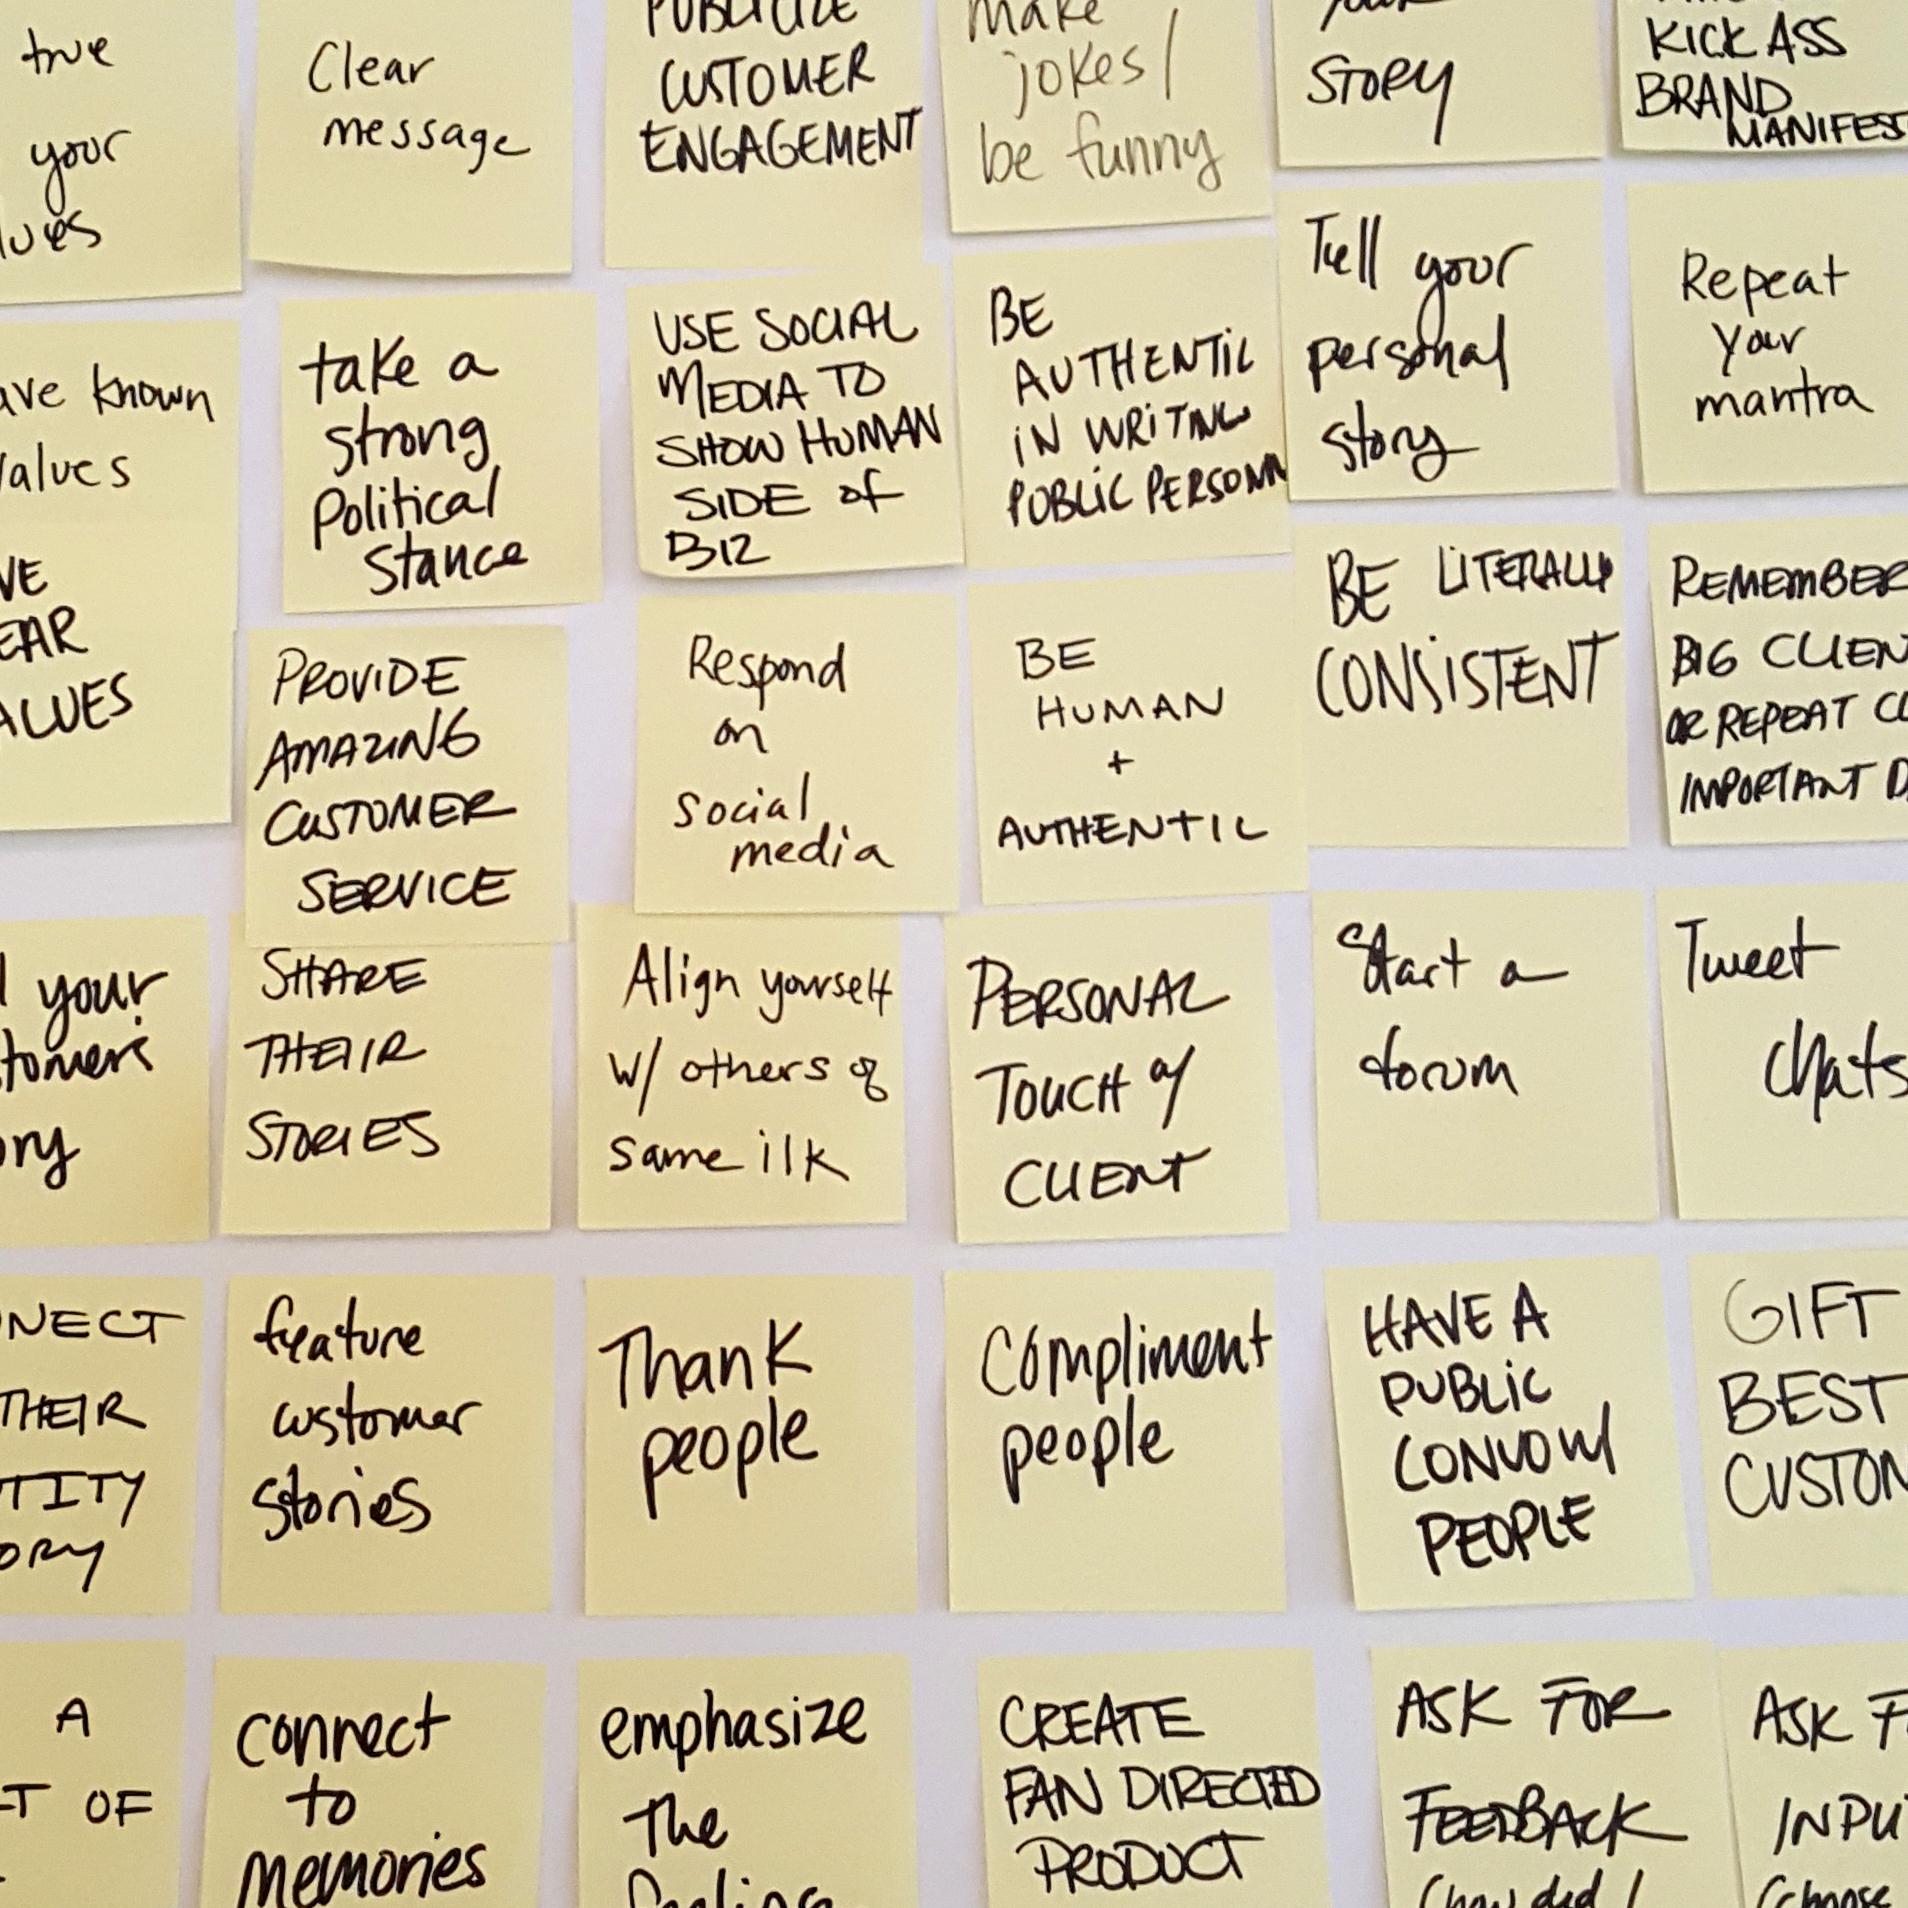 true
your
Clear
message
PUBLICIZE
CUSTOMER
ENGAGEMENT
make
jokes/
be funny
your
STORY
KICK ASS
BRAND
MANIFES
known
values
VALUES
take a
strong
Political
Stance
USE SOCIAL
MEDIA TO
SHOW HUMAN
SIDE of
BIZ
BE
AUTHENTIC
IN WRITING
PUBLIC PERSONA
Tell your
personal
story
Repeat
your
mantra
PROVIDE
AMAZING
CUSTOMER
SERVICE
Respond
on
social
media
BE
HUMAN
+
AUTHENTIC
BE LITERALLY
CONSISTENT
REMEMBER
BIG CLIEN
OR REPEAT CL
IMPORTANT D
your
tomer's
ory
SHARE
THEIR
STORIES
Align yourself
w/ others of
same ilk
PERSONAL
TOUCH w/
CLIENT
Start a
forum
Tweet
Chats
NNECT
THEIR
TITY
ORY
feature
customer
stories
Thank
people
Compliment
people
HAVE A
PUBLIC
CONVO w/
PEOPLE
GIFT
BEST
CUSTOM
A
T OF
connect
to
memories
emphasize
The
feelings
CREATE
FAN DIRECTED
PRODUCT
ASK FOR
FEEDBACK
(how did I
ASK F
INPU
(choose